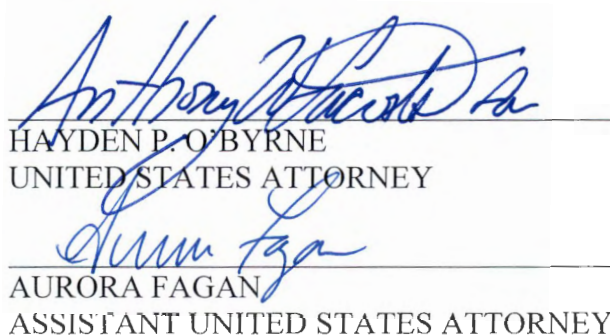 Anthony W Lacosta for
HAYDEN P. O'BYRNE
UNITED STATES ATTORNEY
Aurora Fagan
AURORA FAGAN
ASSISTANT UNITED STATES ATTORNEY